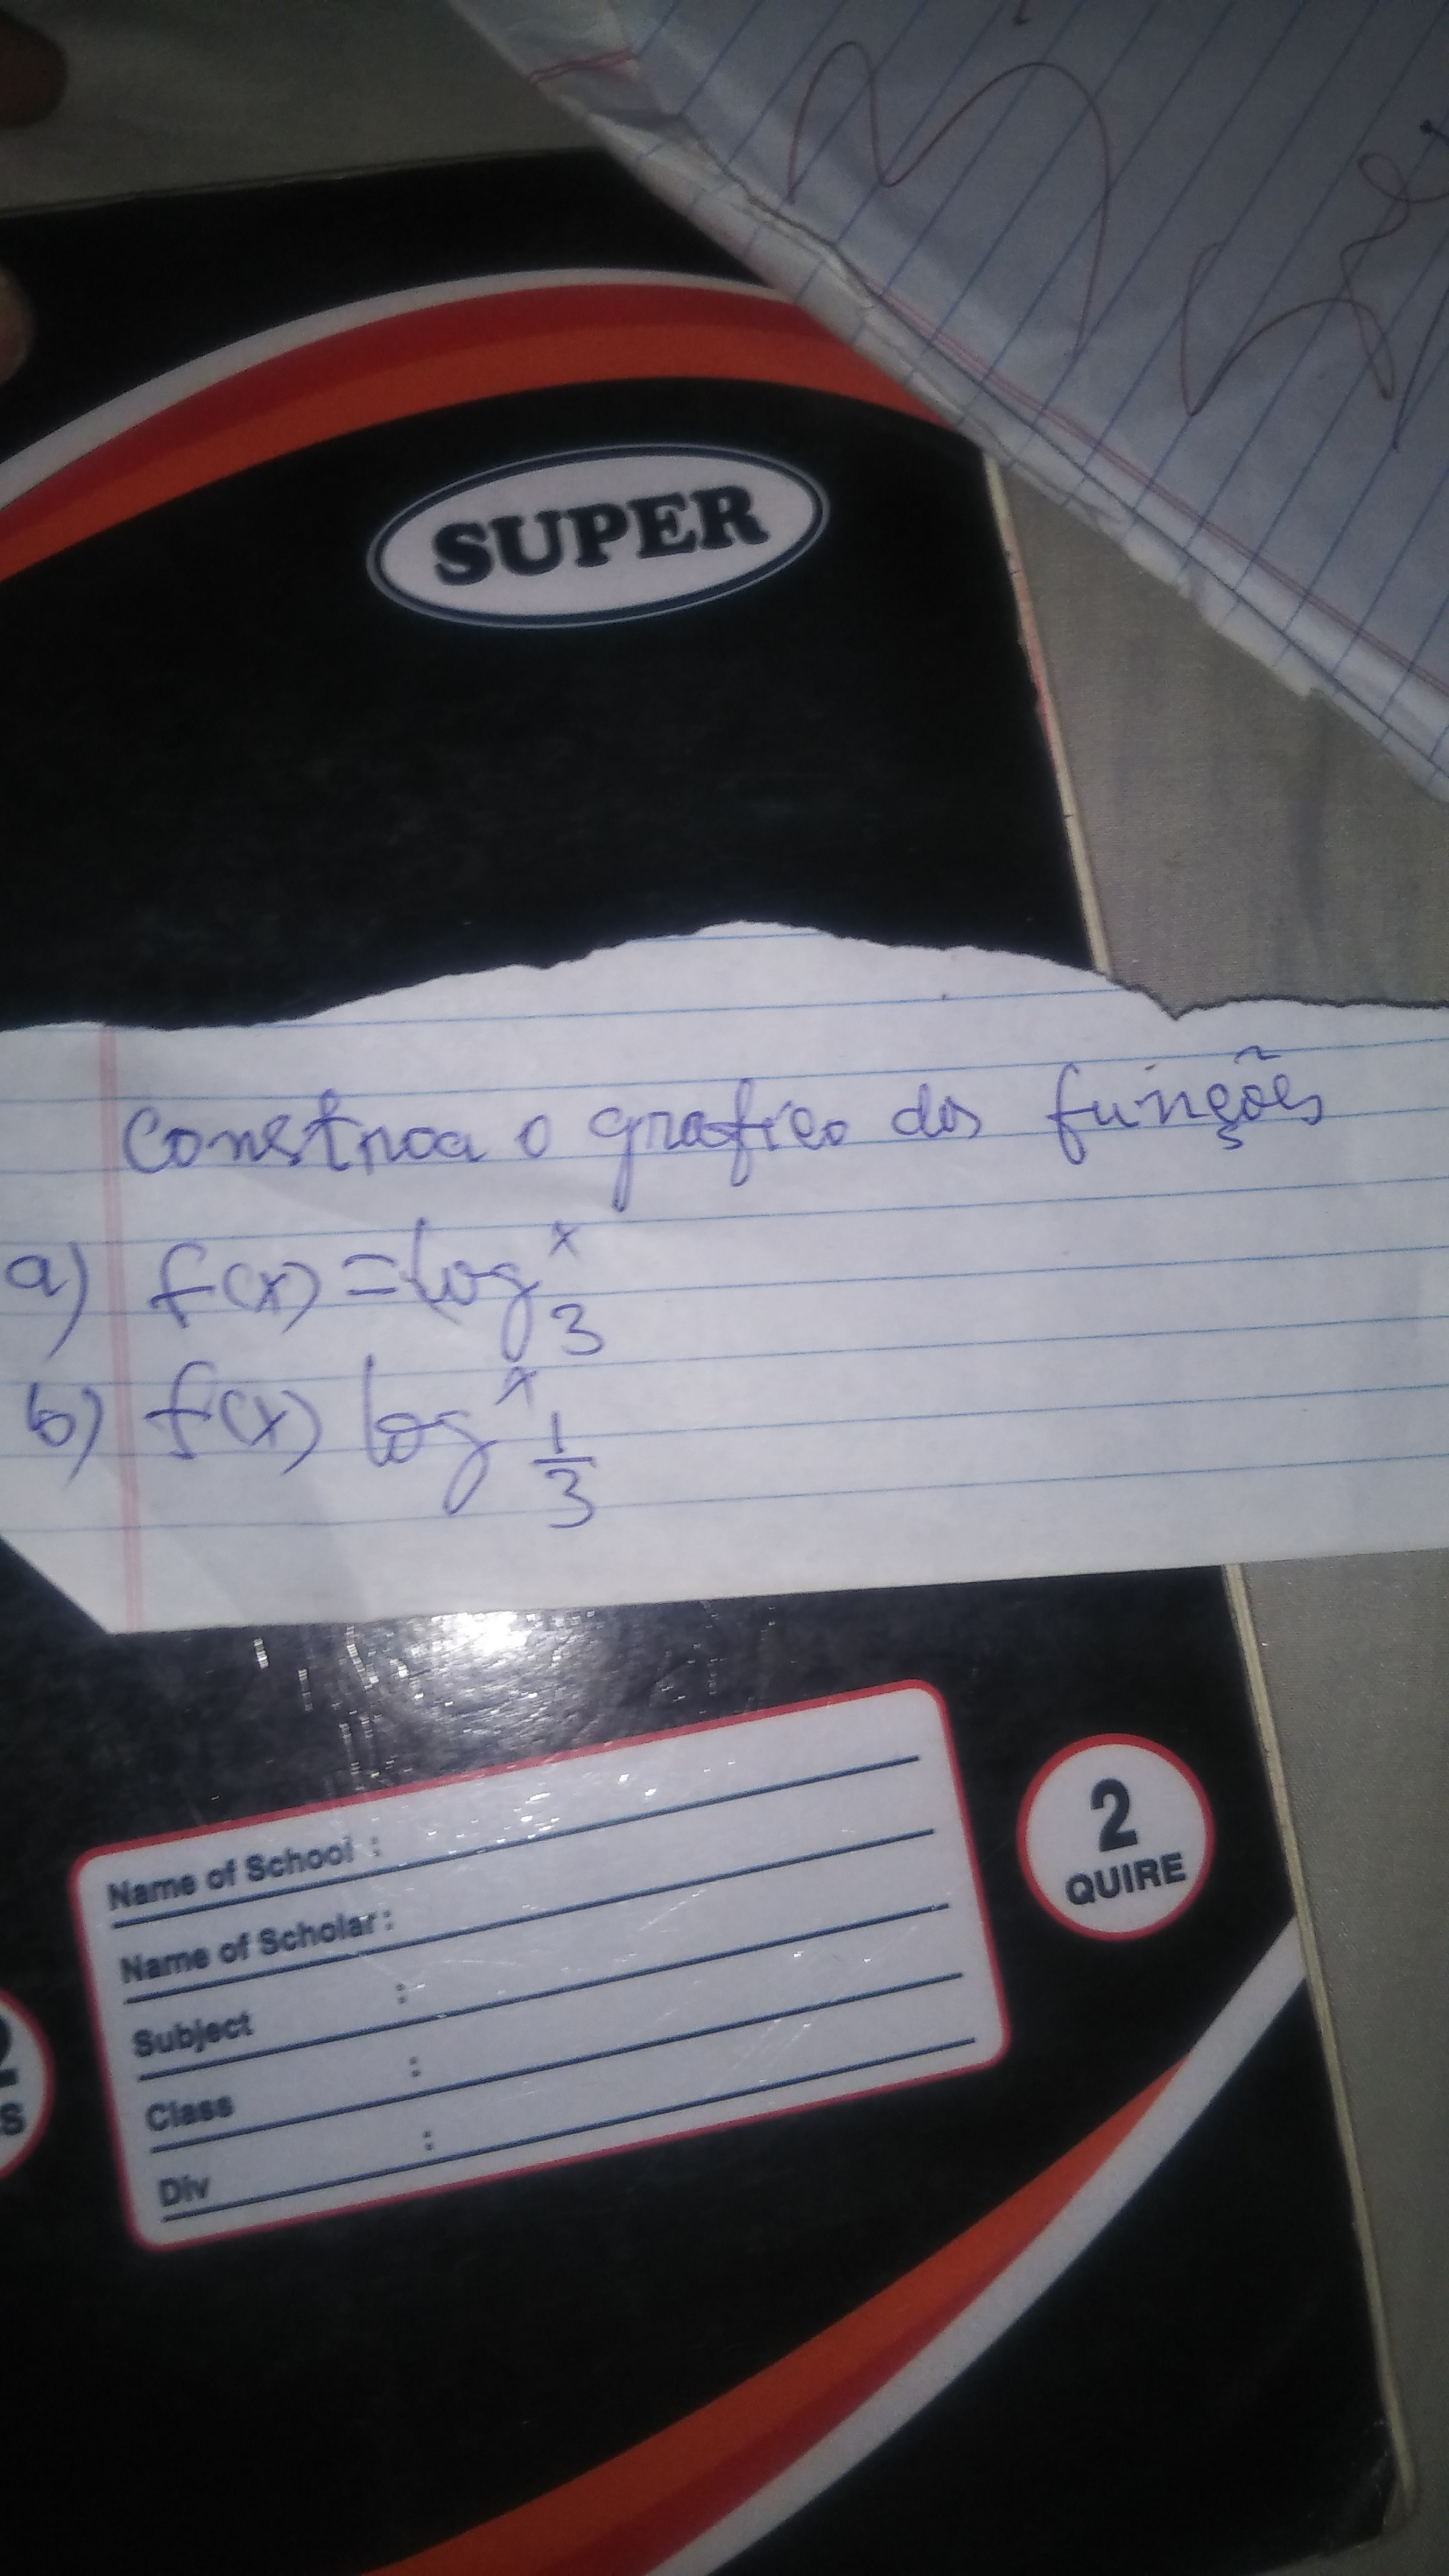 SUPER
Construa o grafico das funções
a) f(x) = log₃ˣ
b) f(x) log ˣ 1/3
Name of School :
Name of Scholar :
Subject :
Class :
Div :
2
QUIRE